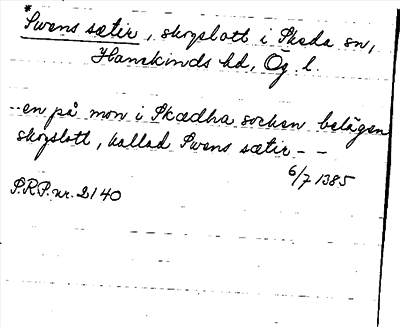 *Swens sætir, skogslott i Skeda sn,
Hanekinds hd, Ög. l.
--en på mon i Skædha socken belägen
skogslott, kallad Swens sætir - -
6/7 1385
S.R.P. nr. 2140